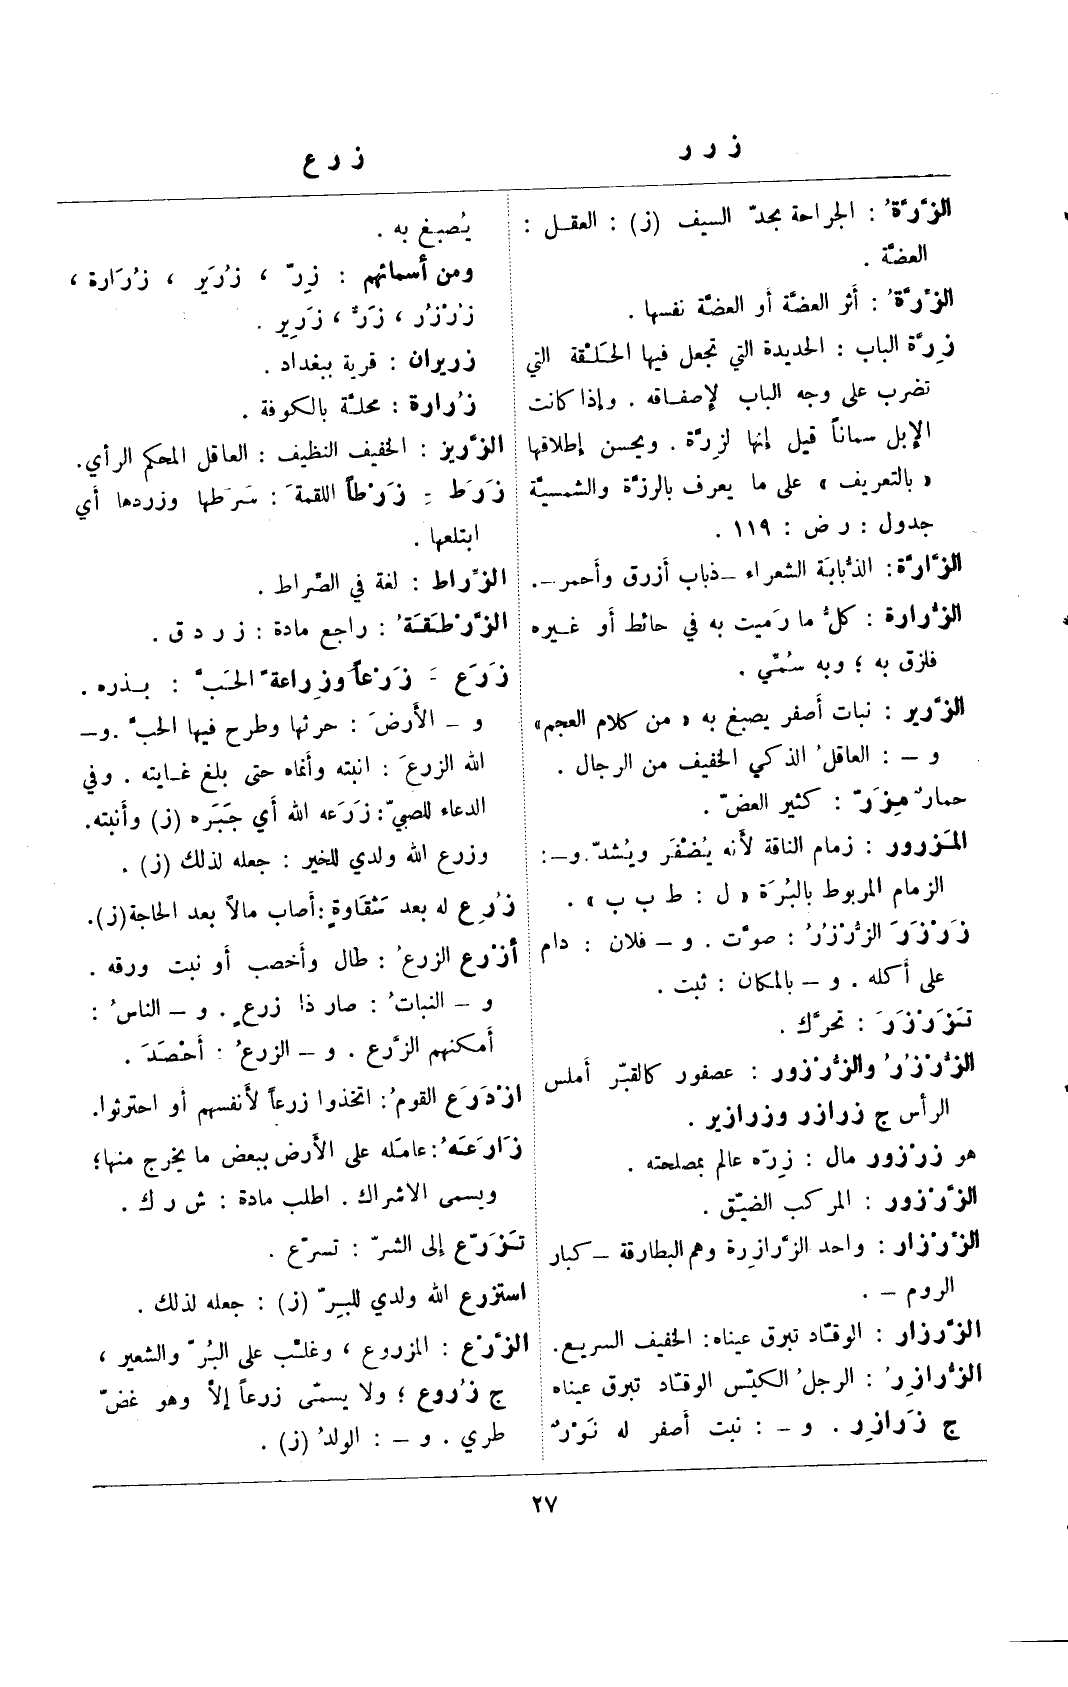 ز ر ر
ز ر ع
الزَّرَّةُ : الجراحة بحدّ السيف (ز) : العقل :
العضّة .
الزَّرَّةُ : أثر العضَّة أو العضَّة نفسها .
زِرَّة الباب : الحديدة التي تجعل فيها الحَلْقة التي
تضرب على وجه الباب لإصفاقه . وإذا كانت
الإبل سماناً قيل إنها لزِرَّة . ويحسن إطلاقها
« بالتعريف » على ما يعرف بالرزَّة والشمسيَّة
جدول : ر ض : ١١٩ .
الزَّارَّة: الذُّبابَة الشعراء –ذباب أزرق وأحمر–.
الزُّرارة : كلُّ ما رَميت به في حائط أو غيره
فلزق به ؛ وبه سُمّي .
الزَّرير : نبات أصفر يصبغ به « من كلام العجم»
و – : العاقلُ الذكي الخفيف من الرجال .
حمارٌ مِزَرّ : كثير العضّ .
المَزرور : زمام الناقة لأنه يُضْفَر ويُشدّ.و–:
الزمام المربوط بالبُرَة « ل : ط ب ب » .
زَرْزَرَ الزُّرْزُرُ : صوَّت . و – فلان : دام
على أكله . و – بالمكان : ثبت .
تَزَرْزَرَ : تحرَّك .
الزُّرْزُرُ والزُّرْزور : عصفور كالقبّر أملس
الرأس ج زرازر وزرازير .
هو زرْزور مال : زِرّه عالم بمصلحته .
الزَّرْزور : المركب الضيّق .
الزَّرْزار : واحد الزَّرازِرة وهم البطارقة –كبار
الروم – .
الزَّرزار : الوقّاد تبرق عيناه: الخفيف السريع.
الزُّرازِرُ : الرجلُ الكيّس الوقّاد تبرق عيناه
ج زَرازِر . و – : نبت أصفر له نَوْرٌ
يُصبغ به .
ومن أسمائهم : زِرّ ، زُرَير ، زُرَارة ،
زُرْزُر ، زَرٌّ ، زَرِير .
زريران : قرية ببغداد .
زُرارة : محلَّة بالكوفة .
الزَّريز : الخفيف النظيف : العاقل المحكم الرأي.
زَرَط ِ زَرْطاً اللقمةَ : سَرَطها وزردها أي
ابتلعها .
الزِّراط : لغة في الصِّراط .
الزَّرْطَقَةُ : راجع مادة : ز ر د ق .
زَرَع َ زَرْعاً وزِراعةً الحَبَّ : بذره .
و – الأرضَ : حرثها وطرح فيها الحبَّ .و–
الله الزرعَ : انبته وأنماه حتى بلغ غايته . وفي
الدعاء للصبيّ: زَرَعه الله أي جَبَره (ز) وأنبته.
وزرع الله ولدي للخير : جعله لذلك (ز) .
زُرِع له بعد شقاوةٍ:أصاب مالاً بعد الحاجة(ز).
أزْرع الزرعُ : طال وأخصب أو نبت ورقه .
و – النباتُ : صار ذا زرعٍ . و – الناسُ :
أمكنهم الزَّرع . و – الزرعُ : أحْصَدَ .
ازْدَرَع القومُ: اتخذوا زرعاً لأنفسهم أو احترثوا.
زَارَعَهُ :عامَله على الأرض ببعض ما يخرج منها؛
ويسمى الاشراك . اطلب مادة : ش ر ك .
تَزَرَّع إلى الشرّ : تسرّع .
استزرع الله ولدي للبِرّ (ز) : جعله لذلك .
الزَّرْع : المزروع ، وغلَّب على البُرّ والشعير ،
ج زُروع ؛ ولا يسمّى زرعاً إلاَّ وهو غضّ
طري . و – : الولدُ (ز) .
٢٧